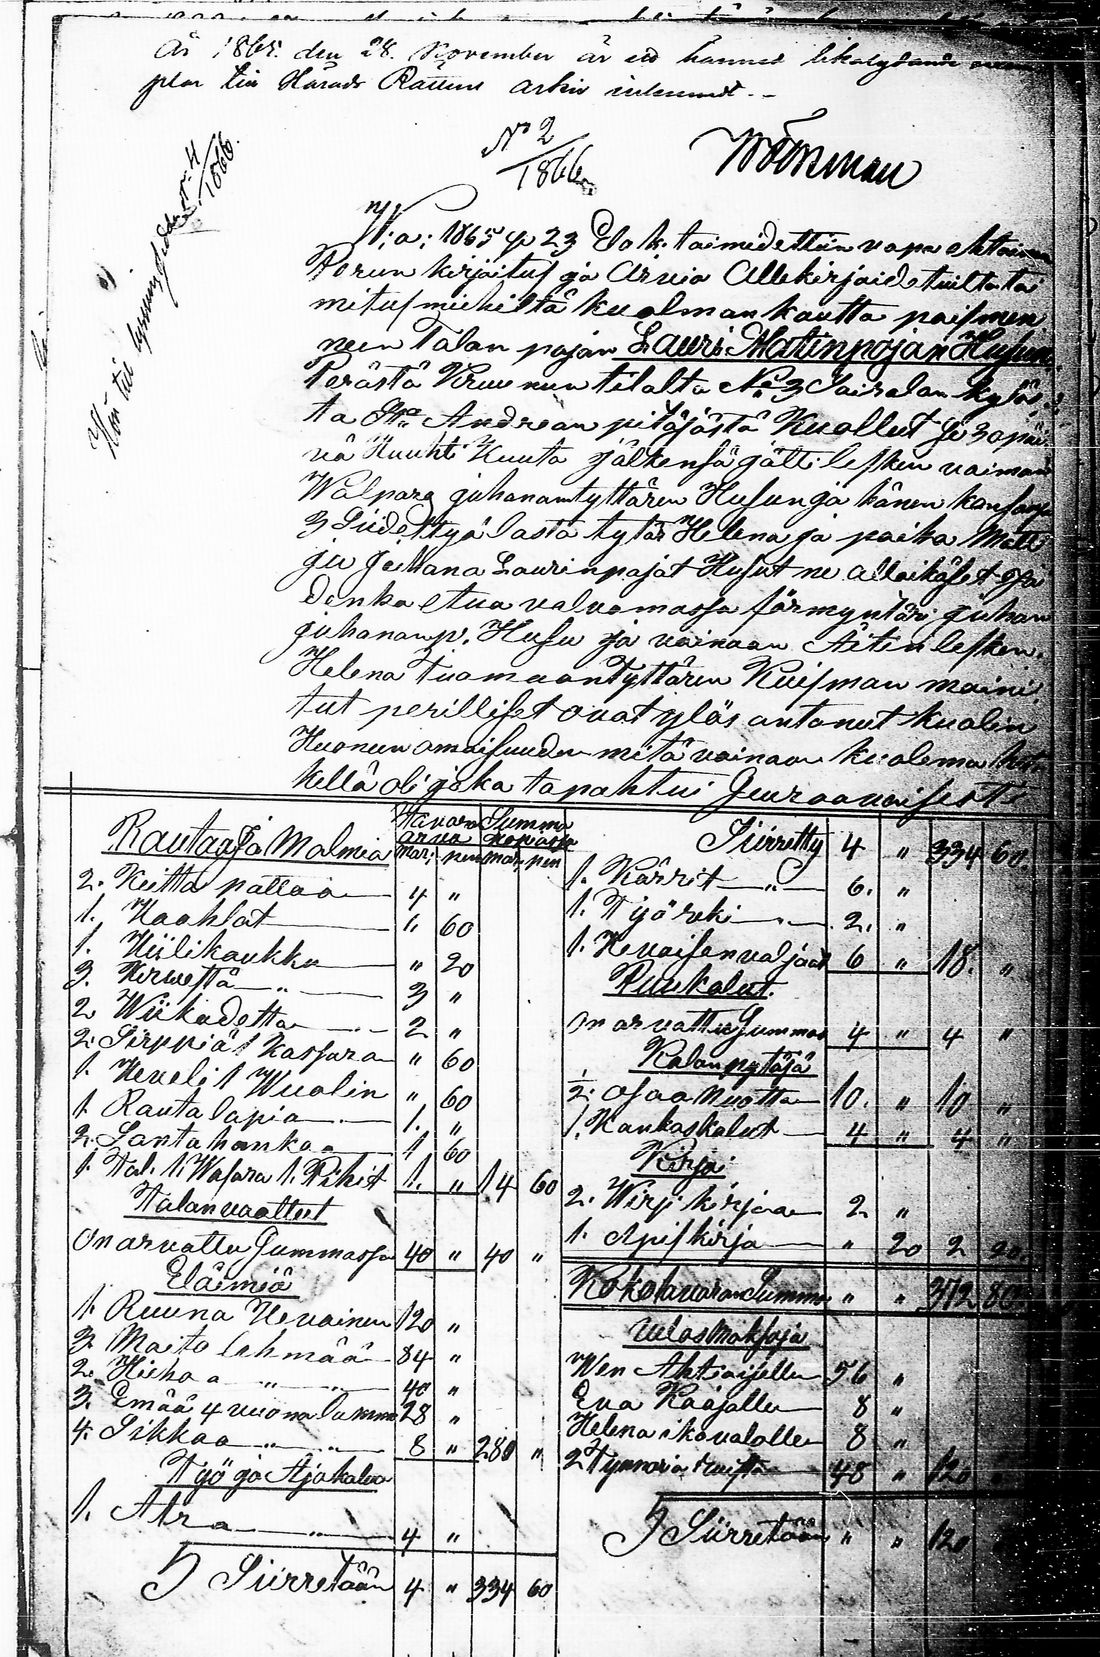 År 1865 den 28 November är ett härmed likalydande
plar till Härads Rättens arkiv inlemnadt. -
N:o 2
/1866
N:o 4
/1866.
W:a: 1865 p 23 Elok. toimidettiin vapa ehtoinen
Perun kirjoitus ja Arvio Allekirjoidetuilta toi
mitus miehiltä kuolman kautta pois men
neen Talan pojan Lauri Matinpojan Husun
Perästä Kruunun tilalta No 3 Sairalan kyläs
ta St:a Andrean pitäjästä Kuollut ja 30 päi
vä Huuhti Kuuta jälkensä jätti lesken vaiman
Walpora juhanantyttären Husun ja hänen kansansa
3 Siidettyä lasta tytär Helena ja poika Matti
ja Johana Laurinpojat Husut ne allaikäset joi
denka etua valvomassa förmyntäri juhan
juhananp. Husu ja vainaan Äitin lesken.
Helena Tuomaantyttären Kuisman maini
tut perilliset ovat ylös antanut kuolin
Huoneen omaisuuden mitä vainaan kuoleman het
kellä oli joka tapahtui Seuraavaisesti
Rautaa ja Malmia
Tavaran arvo Summa
mar; pen mar, pen
2. Keitto pattaa 4 "
1. Kaahlat " 60
1. Hiilikoukku " 20
3. Kirvestä " 3 "
2 Wiikadetta 2 "
2. Sirppiä 1 Kassara " 60
1. Heveli 1 Wuolin " 60
1. Rauta lapia 1. "
2. Santahankoa 1 60
1. Tal. 1. Wasara 1. Pihit 1. " 14 60
Talanvaatteet
On arvattu Summassa 40 " 40 "
Eläimiä
1. Ruuna Hevoinen 120 "
3. Maito lehmää 84 "
2. Hiehoa " " 40 "
3. Emää 4 vuona lammas 28 "
4. Sikkaa " " 8 " 280 "
Työ ja Ajokaluja
1. Atra " 4 "
Siirretään 4 " 334 60
Siirretty 4 " 334 60.
1. Kärrit " 6. "
1. Työ reki 2. "
1. Hevoisen valjaat 6 " 18. "
Puukalut.
On arvattu Summas 4 " 4 "
Kalan pytäjä
1/2. osaa Nuotta 10. " 10 "
1. Kankaskalut 4 " 4 "
Kirja
2. Wirsi kirjaa 2 "
1. Apiskirja " 20 2 20.
Koko tavaran Summa " " 372 80.
Ulos Maksoja
Wen Ahtiaiselle 56 "
Eva Kääjalle 8 "
Helena ikävalalle 8 "
2 Tynnöriä ruista 48 " 120
Siirretään " " 120